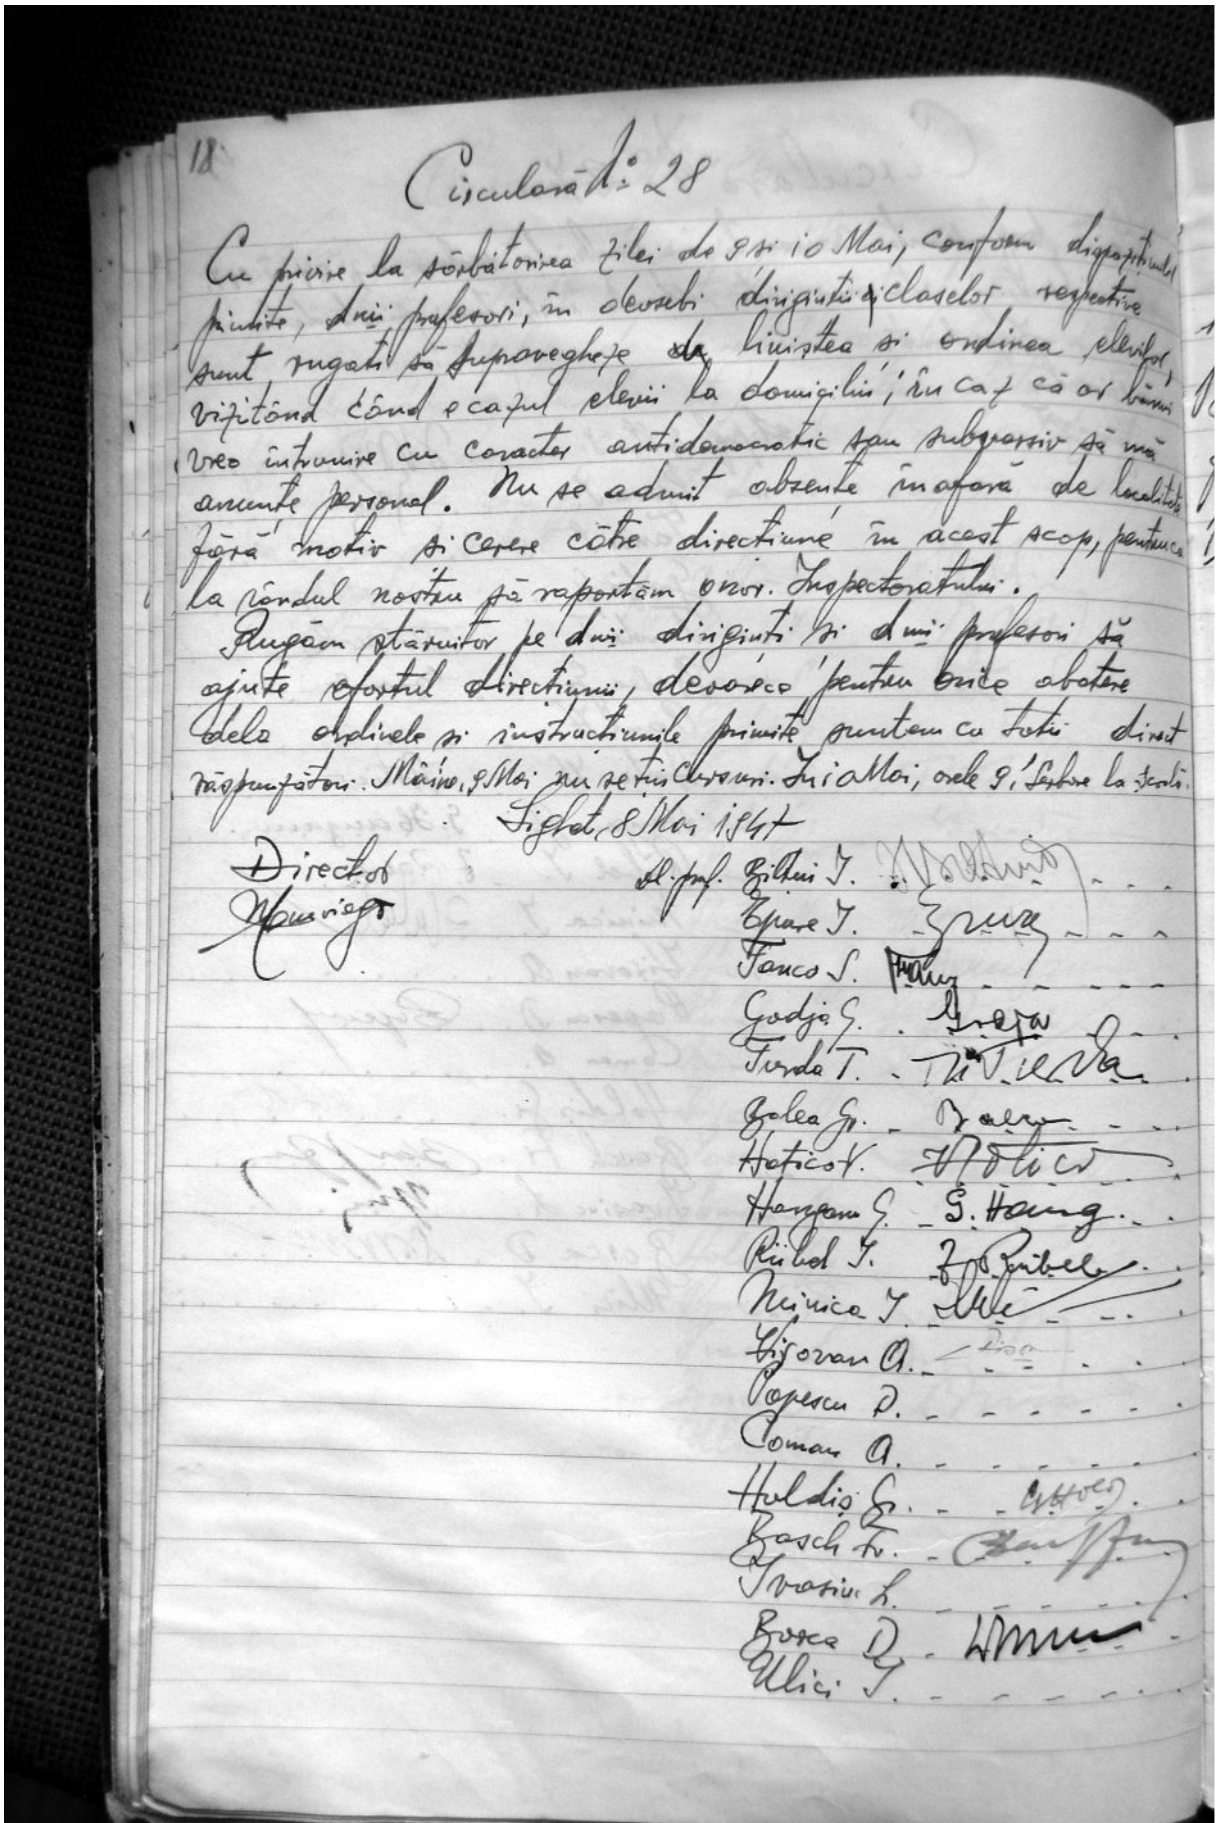 18
Circulară No 28
Cu privire la sărbătorirea zilei de 9 si 10 Mai, conform dispozitiunilor
primite, dnii profesori, în deosebi diriginții claselor respective
sunt rugati să supravegheze liniștea si ordinea elevilor,
vizitând când e cazul elevii la domiciliu; în caz că ar bănui
vreo întrunire cu caracter antidemocratic sau subversiv să mă
anunte personal. Nu se admit absente în afară de localitate
fără motiv si cerere către directiune în acest scop, pentruca
la rândul nostru să raportăm onor. Inspectoratului.
Rugăm stăruitor pe dnii diriginti si dnii profesori să
ajute efortul directiunii, deoarece pentru orice abatere
dela ordinele si instructiunile primite suntem cu totii direct
răspunzători. Mâine, 9 Mai nu se țin cursuri. În 10 Mai, orele 9, serbare la școală.
Sighet, 8 Mai 1947
Director
dl. prof. Biltiu I.
Țpure I.
Fanco S.
Godja G.
Turda T.
Balea Gr.
Hotico V.
Hangau G. G. Hang
Rübel I. Rübel
Minica I.
Vișovan A.
Popescu D.
Coman A.
Holdiș Gr.
Basch Fr.
Ivasiuc L.
Borca D.
Ulici I.